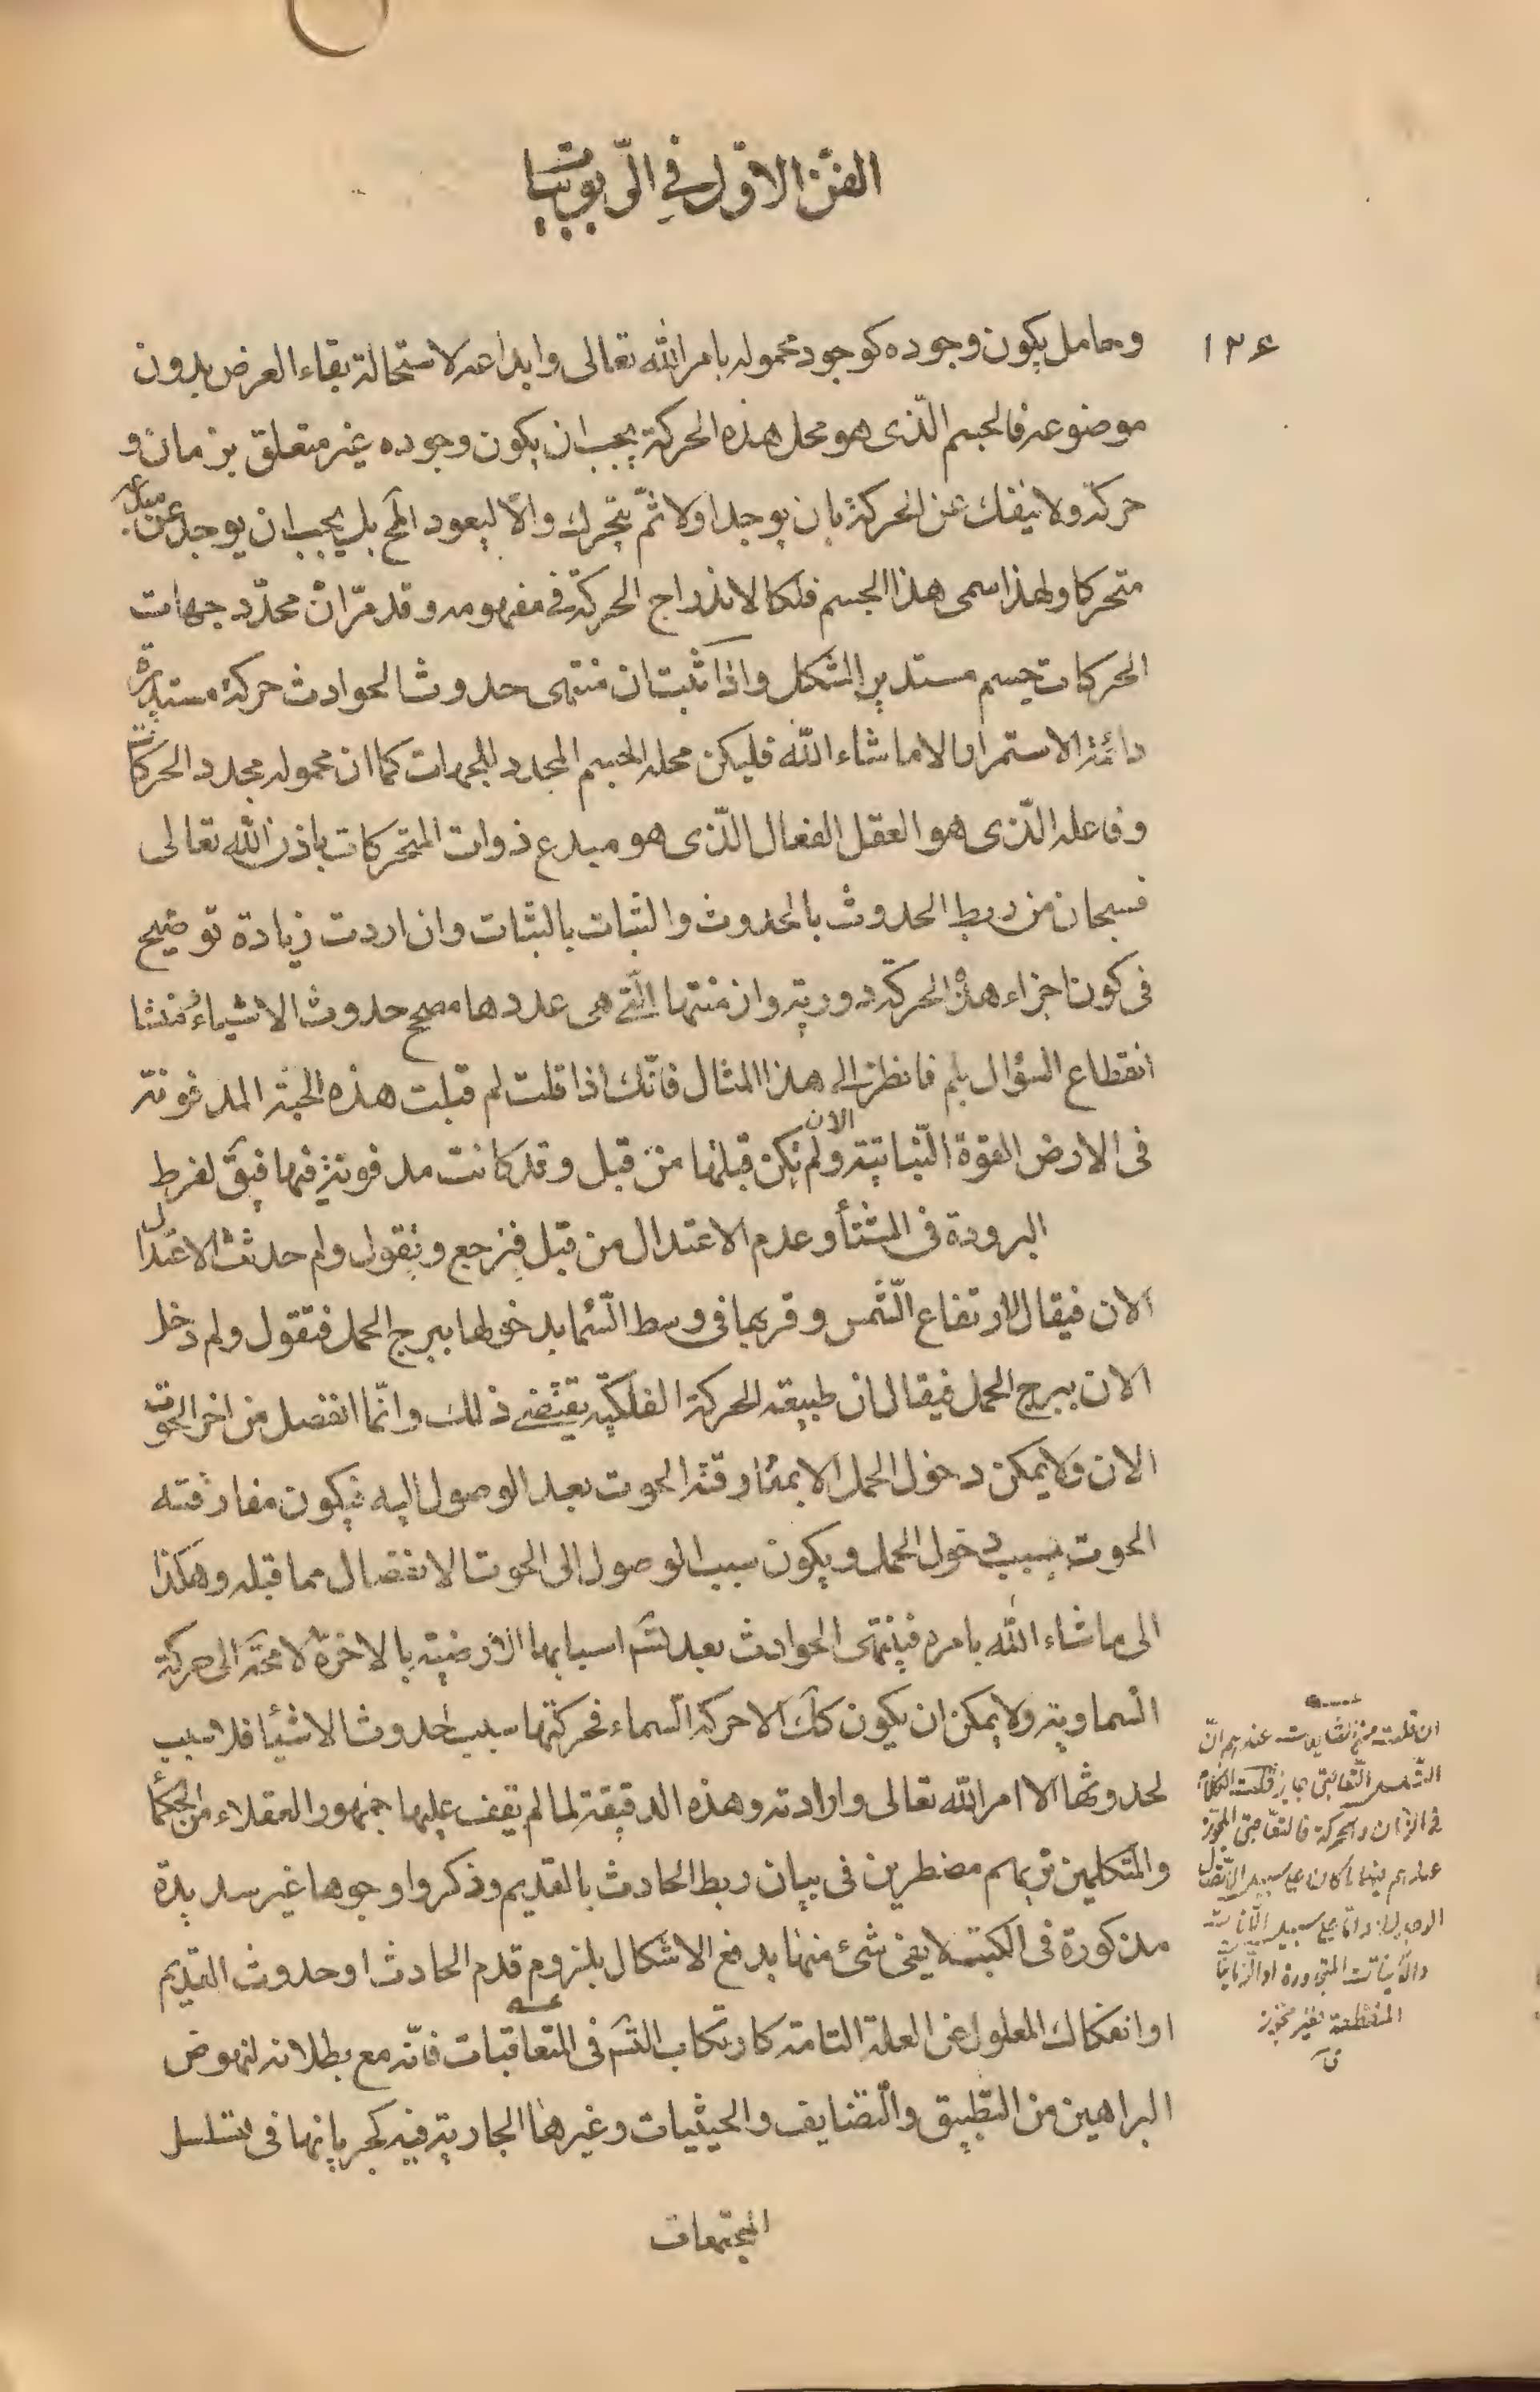 الفنّ الاوّل في الرّبوبيّات
١٢٤
وحامل يكون وجوده كوجود محموله بامر الله تعالى وابداعه لاستحالة بقاء العرض بدون
موضوعه فالجسم الّذى هو محل هذه الحركة يجب ان يكون وجوده غير متعلق بزمان و
حركة ولا ينفك عن الحركة بان يوجد اولا ثمّ يتحرك والّا ليعود المح بل يجب ان يوجد عن مبدعه
متحركا ولهذا سمى هذا الجسم فلكا لاندراج الحركة فى مفهومه وقد مرّ انّ محدّد جهات
الحركات جسم مستدير الشكل واذا ثبت ان منتهى حدوث الحوادث حركة مستديرة
دائمة الاستمرار الا ما شاء الله فليكن محله الجسم المحدد للجهات كما ان محموله مجدد الحركات
وفاعله الّذى هو العقل الفعال الّذى هو مبدع ذوات المتحركات باذن الله تعالى
فسبحان من ربط الحدوث بالحدوث والثبات بالثبات وان اردت زيادة توضيح
فى كون اجزاء هذه الحركة دورية وان منتها الّتى هى عددها مصحح حدوث الاشياء ومنشا
انقطاع السؤال بلم فانظر الى هذا المثال فانّك اذا قلت لم قبلت هذه الحبة المدفونة
فى الارض القوة النّباتية الان ولم تكن قبلتها من قبل وقد كانت مدفونة فيها فيق لفرط
البرودة فى الشتاء وعدم الاعتدال من قبل فنرجع ونقول ولم حدث الاعتدال
الان فيقال لارتفاع الشّمس وقربها فى وسط السّماء بدخولها ببرج الحمل فنقول ولم دخل
الان ببرج الحمل فيقال ان طبيعة الحركة الفلكيّة يقتضى ذلك وانّما انفصل من اخر الحوت
الان ولا يمكن دخول الحمل الا بمفارقة الحوت بعد الوصول اليه فيكون مفارقته
الحوت بسبب دخول الحمل ويكون سبب الوصول الى الحوت الانفصال مما قبله وهكذا
الى ما شاء الله بامره فينتهى الحوادث بعد تسـ اسبابها الارضية بالاخرة لا محة الى حركة
السماوية ولا يمكن ان يكون كك الا حركة السّماء فحركتها سبب حدوث الاشياء فلا سبب
لحدوثها الا امر الله تعالى وارادته وهذه الدقيقة لما لم يقف عليها جمهور العقلاء من الحكماء
والمتكلمين تريهم مضطرين فى بيان ربط الحادث بالقديم وذكروا وجوها غير سديدة
مذكورة فى الكتب لا يفى شئ منها بدفع الاشكال بلزوم قدم الحادث او حدوث القديم
او انفكاك المعلول عن العلة التامة كارتكاب التسـ فى المتعاقبات فانّه مع بطلانه لنهوض
البراهين من التطبيق والتّضايف والحيثيات وغيرها الجارية فيه كجريانها فى تسلسل
المجتمعات
ان قلت عندهم انّ
التّسلسل التّعاقبى جايز قلت
فى الزمان والحركة فالتعاقبى المجوّز
عندهم فيما كان على سبيل الاتّصال
المنقطعة فغير مجوّز